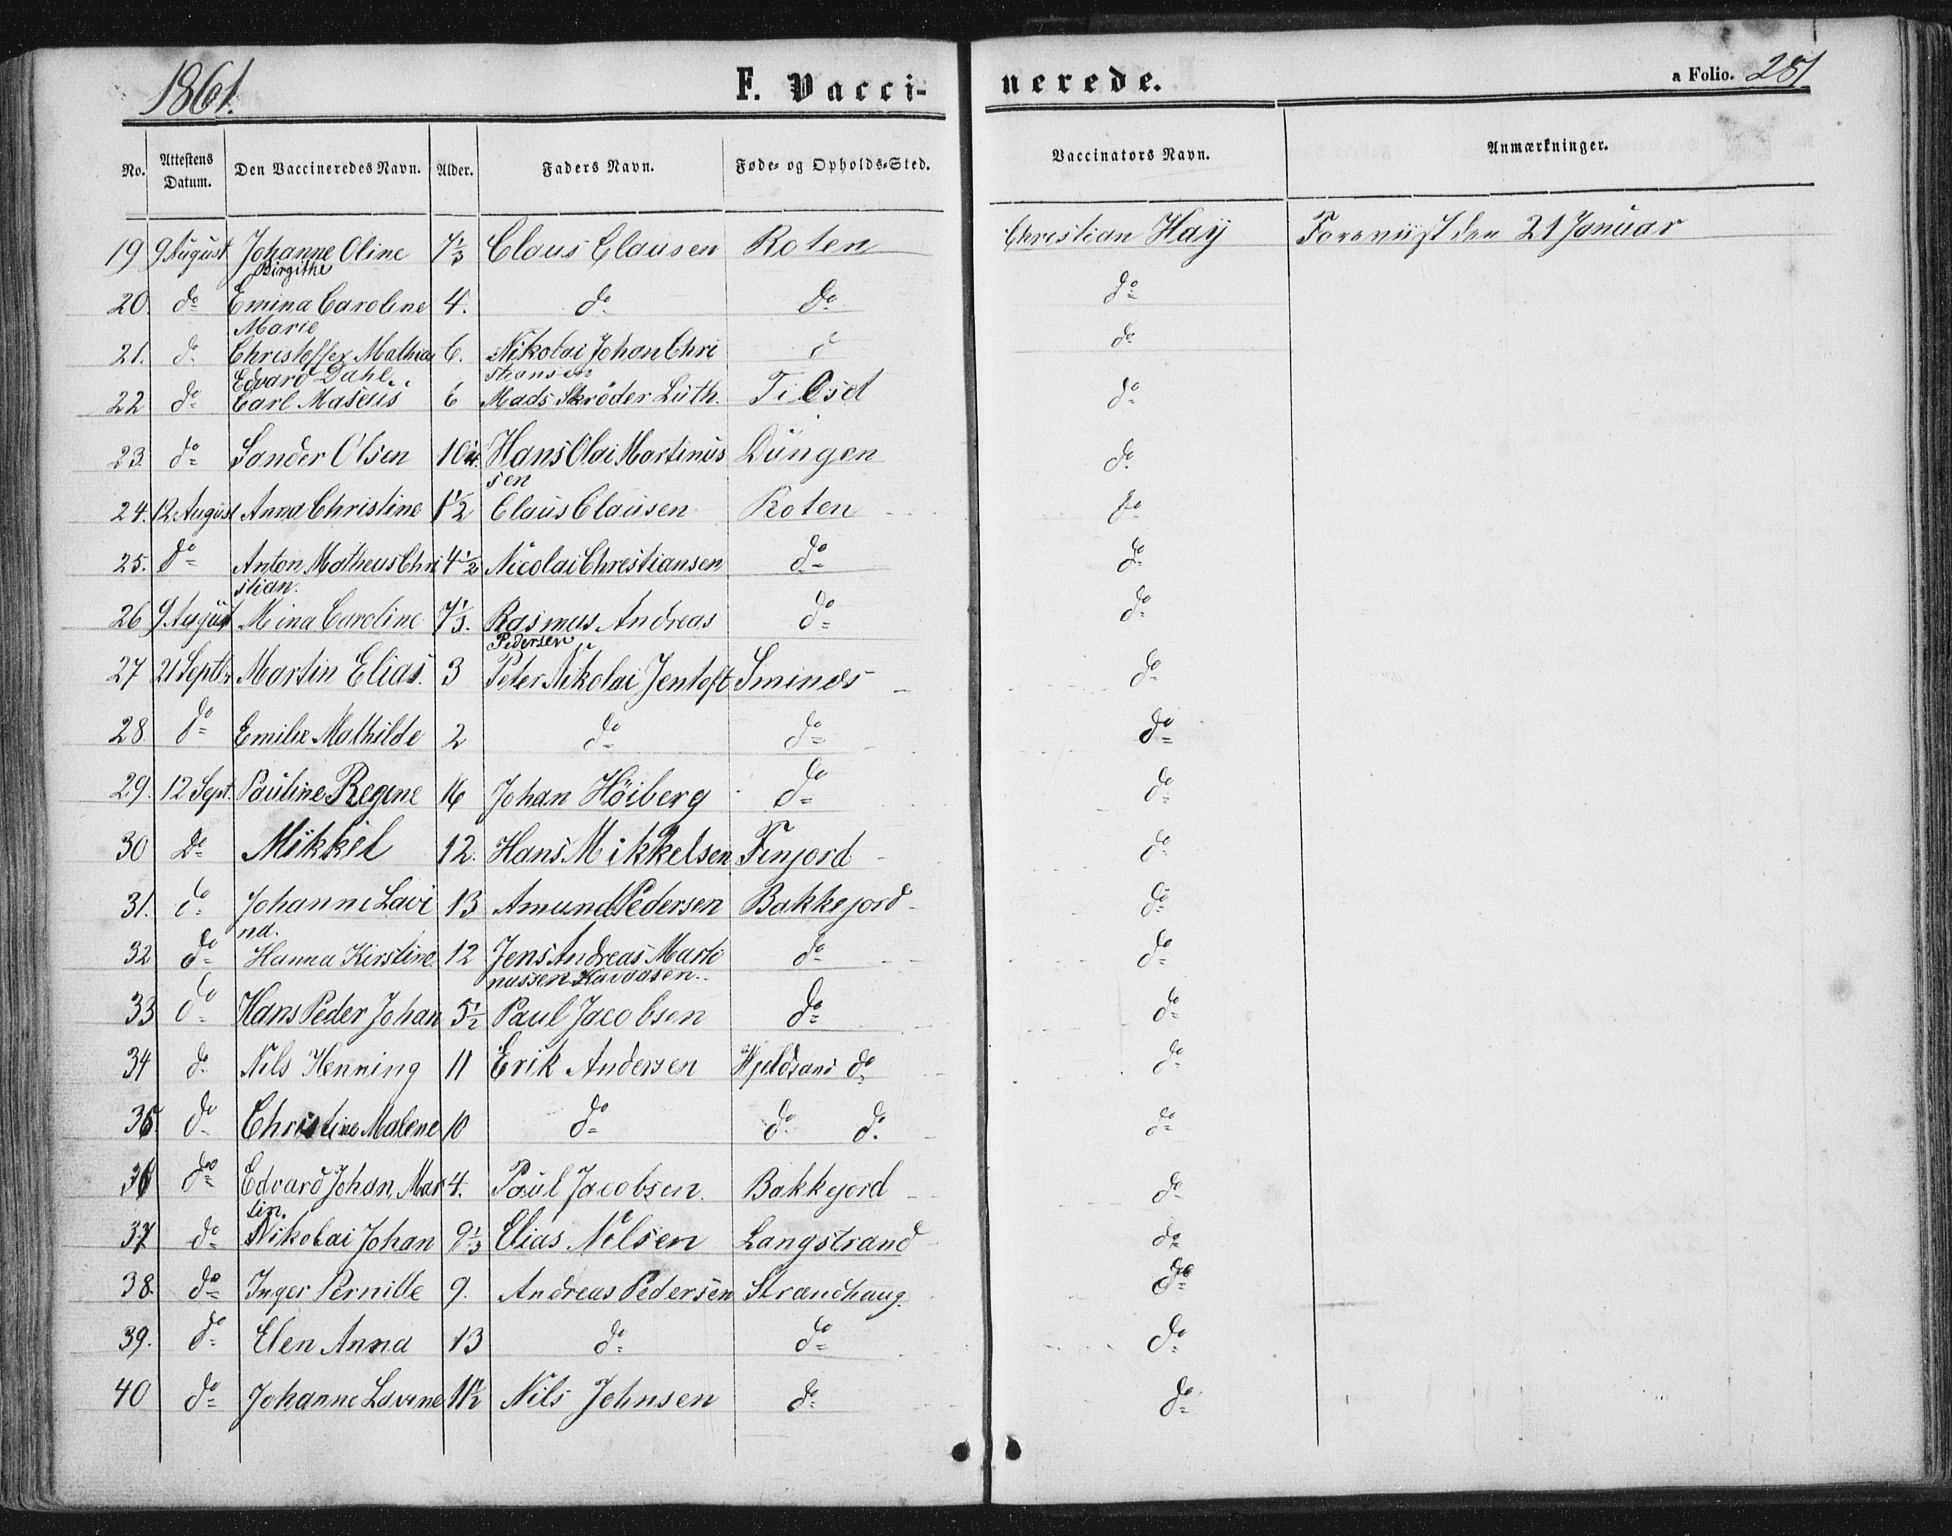 1861.
F. Vacci-
nerede.
a Folio. 281
No. Attestens Datum. Den Vaccineredes Navn. Alder. Faders Navn. Føde- og Opholds-Sted. Vaccinators Navn. Anmærkninger.
19 9 August Johanne Oline 7 1/3 Claus Clausen Roten Christian Hay Foreviist den 21 Januar
Birgithe
20. do Emina Caroline 4. do do do
Marie
21. do Christoffer Mathias 6. Nikolai Johan Chri do do
Edvard Dahl stiansen
22 do Carl Maseus 6 Mads Skrøder Luth. Tilset do
23. do Sander Olsen 10 1/4 Hans Olai Martinus Dungen do
sen
24. 12 August Anna Christine 1 1/2 Claus Clausen Roten do
25. do Anton Matheus Chri 4 1/2 Nicolai Christiansen do do
stian.
26 9 August Mina Caroline 7 1/3. Rasmus Andreas do do
Pedersen
27 21 Septbr Martin Elias. 3 Peter Nikolai Jentoft Sminds do
28. do Emilie Mathilde 2 do do do
29. 12 Sept. Pauline Regine 16 Johan Höiberg do do
30 do Mikkel 12. Hans Mikkelsen Finjord do
31. do Johanne Lavi 13 Amund Pedersen Bakkejord do
na.
32 do Hanna Kirstine 12 Jens Andreas Marti do do
nussen
33 do Hans Peder Johan 5 1/2 Paul Jacobsen do do
34 do Nils Henning 11 Erik Andersen Hjeldsand do do
35. do Christine Malene 10 do do do. do
36 do Edvard Johan Mar 4. Paul Jacobsen. Bakkejord do
tin.
37 do Nikolai Johan 9 1/3 Elias Nilsen Langstrand do
38. do Inger Pernille 9. Andreas Pedersen Strandhaug. do
39. do Elen Anna 13 do do do
40 do Johanne Lavine 11 1/2 Nils Johnsen do do